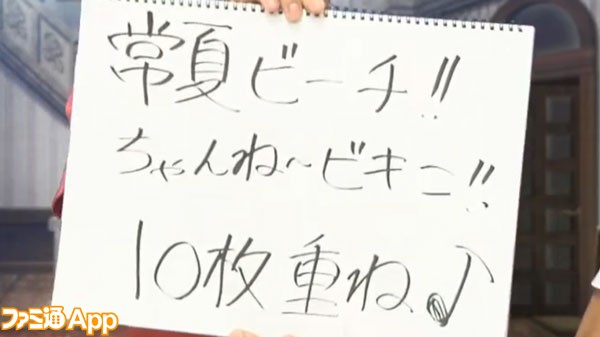 常夏ビーチ!!
ちゃんね〜ビキニ!!
10枚重ね♪
ファミ通App